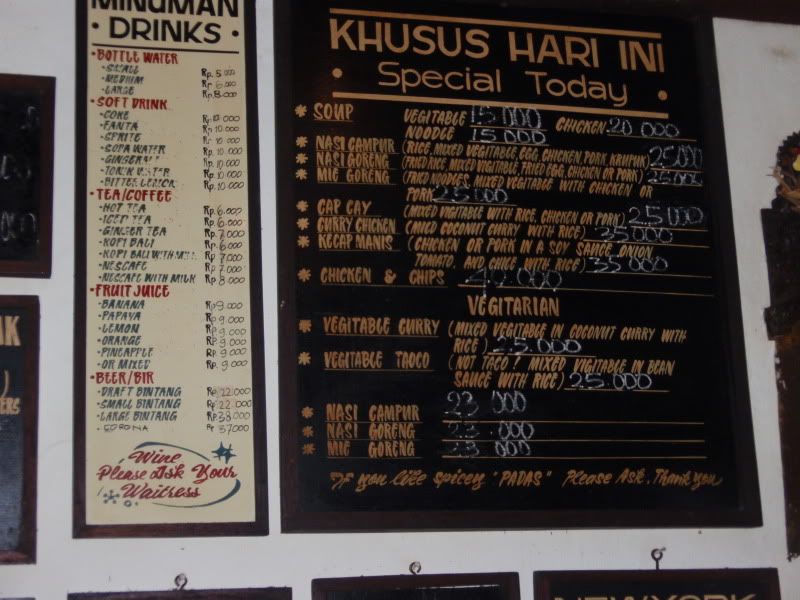 MINUMAN
• DRINKS •
• BOTTLE WATER
• SMALL Rp. 5.000
• MEDIUM Rp 6.000
• LARGE Rp. 8.000
• SOFT DRINK
• COKE Rp. 10 000
• FANTA Rp. 10 000
• SPRITE Rp. 10 000
• SODA WATER Rp. 10.000
• GINGERALE Rp. 10.000
• TONIC WATER Rp. 10.000
• BITTER LEMON Rp. 10.000
• TEA/COFFEE
• HOT TEA Rp 6.000
• ICED TEA Rp 6.000
• GINGER TEA Rp 7.000
• KOPI BALI Rp 6.000
• KOPI BALI WITH MILK Rp 7.000
• NESCAFE Rp 7.000
• NESCAFE WITH MILK Rp 8.000
• FRUIT JUICE
• BANANA Rp 9.000
• PAPAYA Rp 9.000
• LEMON Rp 9.000
• ORANGE Rp 9.000
• PINEAPPLE Rp 9.000
• OR MIXED Rp 9.000
• BEER/BIR
• DRAFT BINTANG Rp 22.000
• SMALL BINTANG Rp 22.000
• LARGE BINTANG Rp 38.000
• CORONA Rp 37000
Wine
Please Ask Your
Waitress
KHUSUS HARI INI
• Special Today •
* SOUP VEGITABLE 15 000 CHICKEN 20 000
NOODLE 15 000
* NASI CAMPUR (RICE, MIXED VEGITABLE, EGG, CHICKEN, PORK, KRUPUK) 25000
* NASI GORENG (FRIED RICE, MIXED VEGITABLE, FRIED EGG, CHICKEN OR PORK) 25000
* MIE GORENG (FRIED NOODLES, MIXED VEGETABLE WITH CHICKEN OR
PORK 25 000
* CAP CAY (MIXED VIGITABLE WITH RICE, CHICKEN OR PORK) 25 000
* CURRY CHICKEN (MILD COCONUT CURRY WITH RICE) 35000
* KECAP MANIS (CHICKEN OR PORK IN A SOY SAUCE, ONION,
TOMATO, AND CHILE WITH RICE) 35 000
* CHICKEN & CHIPS 40.000
VEGITARIAN
* VEGITABLE CURRY (MIXED VEGITABLE IN COCONUT CURRY WITH
RICE) 25.000
* VEGITABLE TAOCO (NOT TACO! MIXED VIGITABLE IN BEAN
SAUCE WITH RICE) 25 000
* NASI CAMPUR 23 000
* NASI GORENG 23 000
* MIE GORENG 23 000
If you like spicey "PADAS" Please Ask, Thank you
NEW YORK